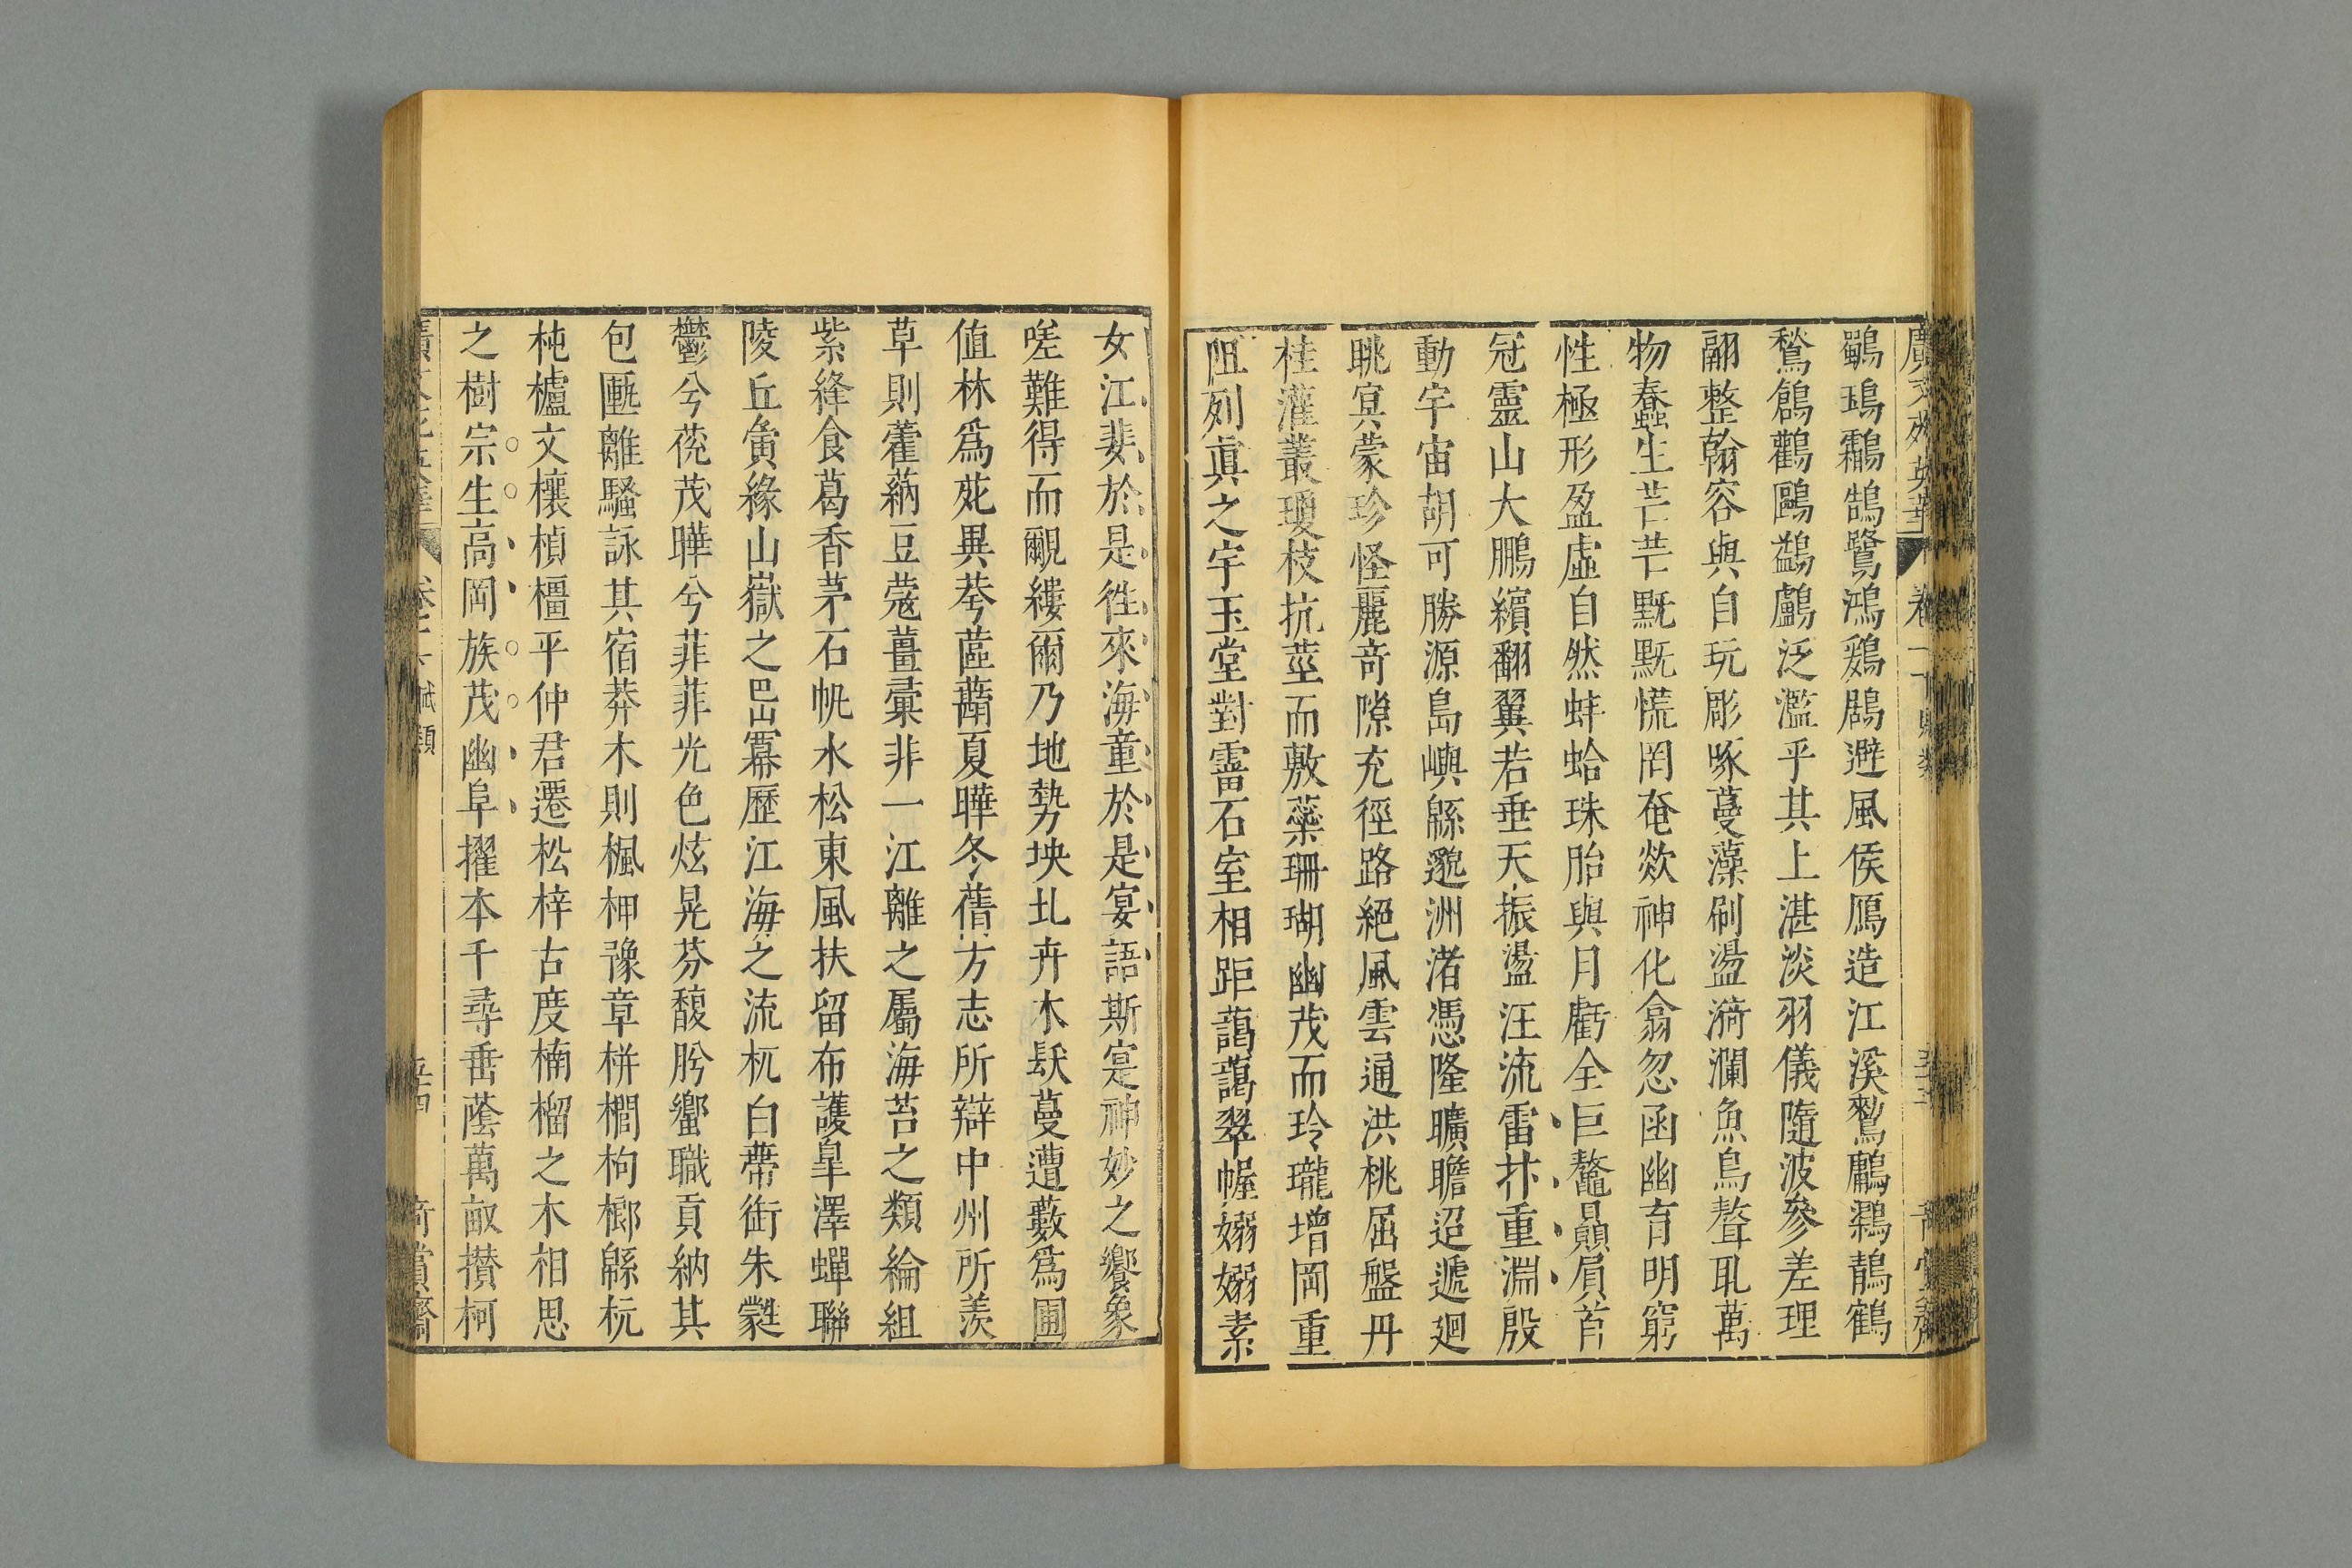 廣文苑英華 卷二十 賦類 五十三 奇賞齋
鸀鳿鸘鵠鷺鴻鶢鶋避風侯鴈造江溪鷘鷛鶄鶴
鶖鶬鸛鷗鷁鸕泛濫乎其上湛淡羽儀隨波參差理
翮整翰容與自玩彫啄蔓藻刷盪漪瀾魚鳥聱耴萬
物蠢生芒芒黖黖慌罔奄欻神化翕忽函幽育明窮
性極形盈虛自然蚌蛤珠胎與月虧全巨鼇贔屓首
冠靈山大鵬繽翻翼若垂天振盪汪流雷抃重淵殷
動宇宙胡可勝源島嶼緜邈洲渚憑隆曠瞻迢遞迴
眺冥蒙珍怪麗奇隙充徑路絕風雲通洪桃屈盤丹
桂灌叢瓊枝抗莖而敷蘂珊瑚幽茂而玲瓏增岡重
阻列眞之宇玉堂對霤石室相距藹藹翠幄嫋嫋素
女江斐於是徃來海童於是宴語斯寔神妙之饗象
嗟難得而覼縷爾乃地勢坱圠卉木镺蔓遭藪爲圃
值林爲苑異荂蓲蘛夏曄冬蒨方志所辯中州所羨
草則藿蒳豆蔻薑彙非一江離之屬海苔之類綸組
紫絳食葛香茅石帆水松東風扶留布䕶臯澤蟬聯
陵丘夤緣山嶽之岊冪歷江海之流杌白蔕銜朱蕤
鬱兮茷茂曄兮菲菲光色炫晃芬馥肹蠁職貢納其
包匭離騷詠其宿莽木則楓柙豫章栟櫚枸榔緜杬
杶櫨文欀楨橿平仲君遷松梓古度楠榴之木相思
之樹宗生高岡族茂幽阜擢本千尋垂蔭萬畝攅柯
廣文苑英華 卷二十 賦類 五十四 奇賞齋